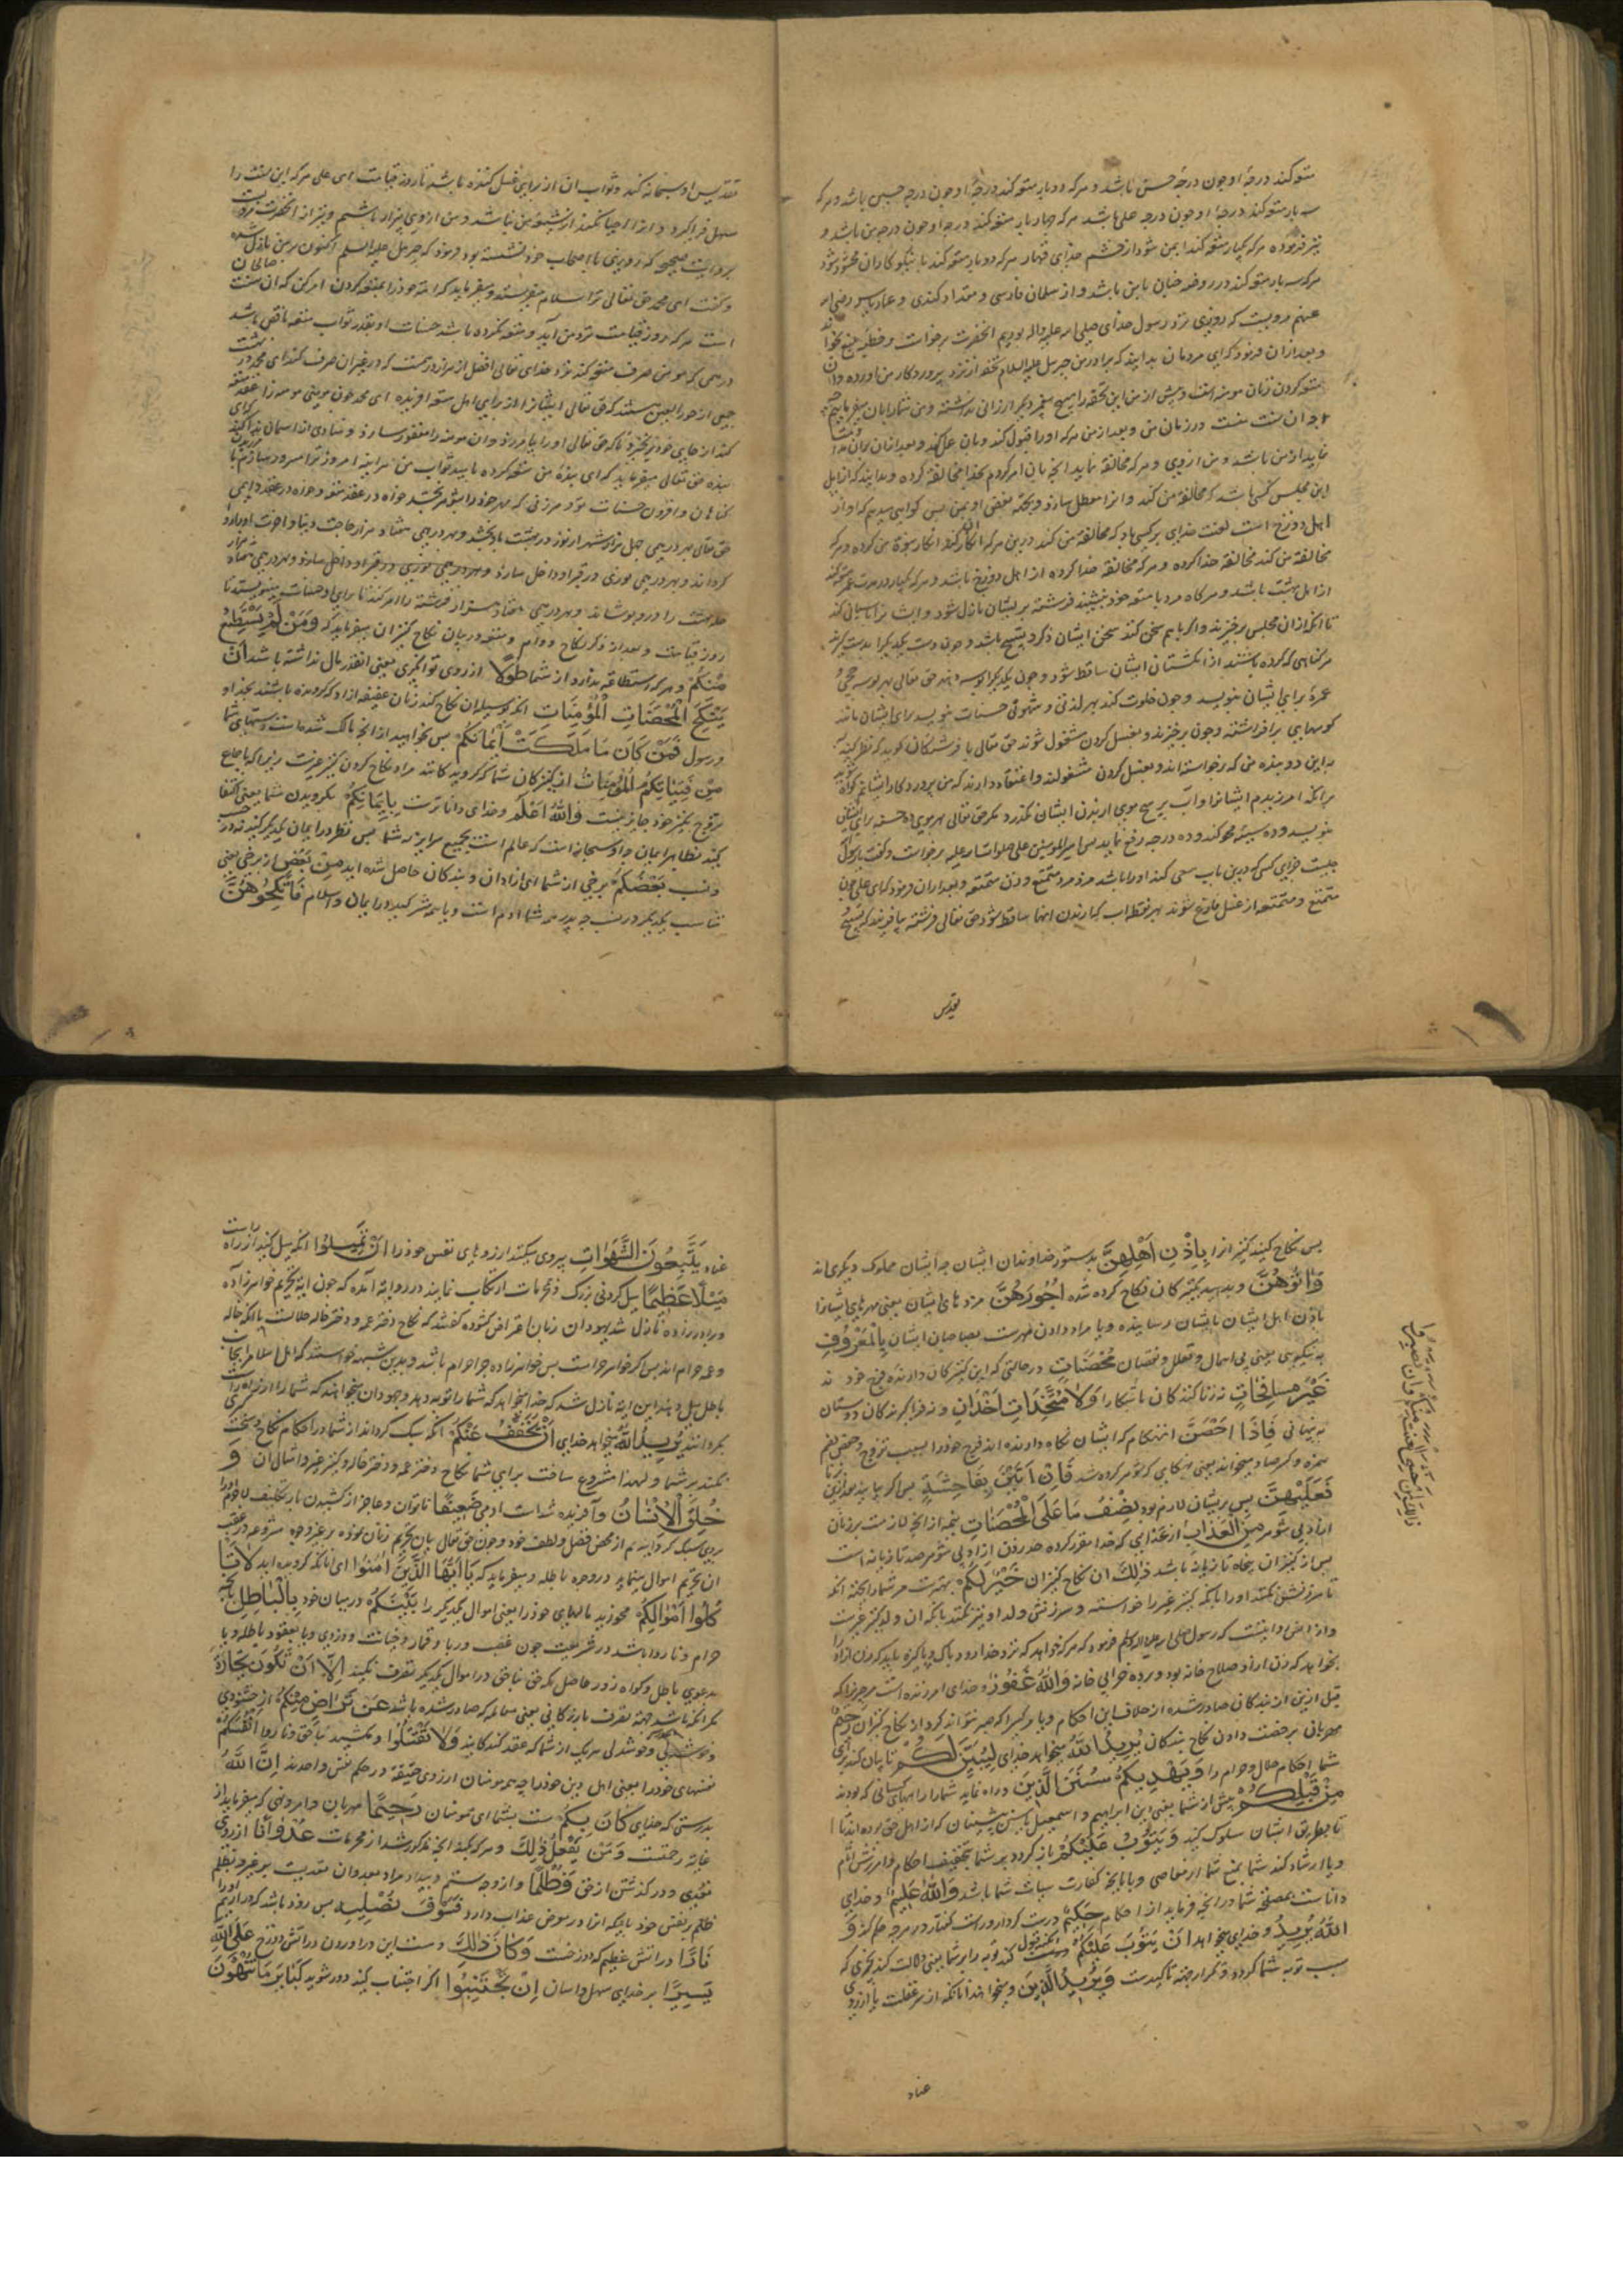 متعه کند درجهٔ او چون درجهٔ حسین باشد و هرکه دوبار متعه کند درجهٔ او چون درجه حسن باشد و هرکه
سه بار متعه کند درجهٔ او چون درجه علی باشد هرکه چهار بار متعه کند درجه او چون درجه من باشد و
نیز فرموده هرکه یکبار متعه کند ایمن شود از خشم خدای قهار هرکه دوبار متعه کند با نیکوکاران محشور شود
هرکه سه بار متعه کند در روضه جنان با من باشد و از سلمان فارسی و مقداد کندی و عمار یاسر رضی الله
عنهم مرویست که روزی نزد رسول خدای صلی الله علیه واله بودیم انحضرت برخواست و خطبه
و بعد ازان فرمود که ای مردمان بدانید که برادر من جبرئیل علیه السلام تحفه از نزد پروردکار من آورده وان
متعه کردن زنان مومنه است و پیش از من این تحفه را بهیچ پیغمبر دیکر ارزانی نداشته و من شما را بان میفرمایم
که ان سنت منست در زمان من و بعد از من هرکه او را قبول کند و بان عمل کند و بعد ازان بران
نماید از من باشد و من از وی و هرکه مخالفت نماید انچه بان امر کردم بخدا مخالفت کرده و بدانید که از اهل
این مجلس کسی باشد که مخالفه من کند و انرا معطل سازد و بجهة بغض او بمن پس کواهی میدهم که او از
اهل دوزخ است لعنت خدای بر کسی باد که مخالفت من کند درین هرکه انکار کند انکار نبوة من کرده و هرکه
مخالفة من کند مخالفة خدا کرده و هرکه مخالفة خدا کرده از اهل دوزخ باشد و هرکه یکبار در مدت عمر متعه کند
از اهل بهشت باشد و هرکاه مرد با متعه خود بنشیند فرشته بر یشان نازل شود و ایشانرا پاسبانی کند
تا انکه ازان مجلس برخیزند و اکر باهم سخن کنند سخن ایشان ذکر و تسبیح باشد و چون دست یکدیکر بدست کیرند
هر کناهی که کرده باشند از انکشتان ایشان ساقط شود و چون یکدیکر را بوسه دهند حق تعالی بهر بوسه حجی و
عمرهٔ برای ایشان بنویسد و چون خلوت کنند بهر لذتی و شهوتی حسنات بنویسد برای ایشان مانند
کوههای برافراشته و چون برخیزند و بغسل کردن مشغول شوند حق تعالی با فرشتکان کوید که نظر کنید
باین دو بنده من که برخواسته اند و بغسل کردن مشغولند و اعتقاد دارند که من پروردکار ایشانم کواه
بر انکه امرزیدم ایشانرا و آب بر هیچ موی از بدن ایشان نکذرد مکر حق تعالی بهر موی ده حسنه برای ایشان
بنویسد و ده سیئه محو کند و ده درجه رفع نماید پس امیر المومنین علی صلوات الله علیه برخواست و کفت یا رسول الله
چیست جزای کسی که درین باب سعی کند او را باشد مزد مرد متمتع و زن متمتعه و بعد ازان فرمود که ای علی چون
متمتع و متمتعه از غسل فارغ شوند بهر قطه اب که از بدن انها ساقط شود حق تعالی فرشته بیافریند که تسبیح
تقدیس
تقدیس او سبحانه کند و ثواب ان از برای غسل کننده باشد تا روز قیامت ای علی هرکه این سنت را
سهل فراکیرد و انرا احیا نکند از شیعه من نباشد و من از وی بیزار باشم و نیز از انحضرت مرویست
بروایت صحیح که روزی با اصحاب خود نشسته بود فرمود که جبرئیل علیه السلم اکنون بر من نازل شده
و کفت ای محمد حق تعالی ترا سلام میفرستد و میفرماید که امّة خود را بمتعه کردن امر کن که ان سنت صالحان
است هرکه روز قیامت نزد من آید و متعه نکرده باشد حسنات او بقدر ثواب متعه ناقص باشد
درهمی که مومن صرف متعه کند نزد خدای تعالی افضل از هزار درهمست که در غیر ان صرف کند ای محمد در بهشت
جمعی از حور العین هستند که حق تعالی ایشانرا از برای اهل متعه افریده ای محمد چون مومنی مومنه را عقد متعه
کند از جای خود برنخیزد تا که حق تعالی او را بیامرزد و ان مومنه را مغفور سازد و منادی از اسمان ندا کند که ای
بنده حق تعالی میفرماید که ای بنده من متعه کرده بامید ثواب من هراینه امروز ترا مسرور سازم
کناهان و افزودن حسنات تو و هر زنی که مهر خود را بشوهر بخشد خواه در عقد متعه و خواه در عقد دوام
حق تعالی بهر درهمی چهل هزار شهر از نور در بهشت باو بخشد و بهر درهمی هفتاد هزار حاجت دنیا و اخرت او را روا
کرداند و بهر درهمی نوری در قبر او داخل سازد
حله بهشت را درو پوشاند و بهر درهمی هفتاد هزار فرشته را امر کند تا برای او حسنات مینویسند تا
روز قیامت و بعد از ذکر نکاح دوام و متعه در بیان نکاح کنیزان میفرماید که وَمَنْ لَمْ یَسْتَطِعْ
مِنْکُمْ و هرکه استطاعة ندارد از شما طَوْلًا از روی توانکری یعنی انقدر مال نداشته باشد أَنْ
یَنْکِحَ الْمُحْصَنَاتِ الْمُؤْمِنَاتِ انکه بوسیله ان نکاح کند زنان عفیفه ازاد که کرویده باشند بخدا و
رسول فَمِنْ مَا مَلَکَتْ أَیْمَانُکُمْ پس بخواهید از انچه مالک شده است دستهای شما
مِنْ فَتَیَاتِکُمُ الْمُؤْمِنَاتِ از کنیزکان شما که کرویده کانند مراد نکاح کردن کنیز غیرست زیرا که باجماع
تزویج کنیز خود جایز نیست وَاللّٰهُ أَعْلَمُ و خدای داناترست بِإِیمَانِکُمْ بکرویدن شما یعنی اکتفا
کنید بظاهر ایمان چه او سبحانه است که عالم است بجمیع سرایر نه شما پس نظر در ایمان یکدیکر کنید نه در حسب
و نسب بَعْضُکُمْ برخی از شما ای ازادان و بندکان حاصل شده اید مِنْ بَعْضٍ از برخی یعنی
تناسب یکدیکرید در نسب چه پدر همه شما ادم است و باهم مشترکید در ایمان و اسلام فَانْکِحُوهُنَّ
پس نکاح کنید کنیزانرا بِإِذْنِ أَهْلِهِنَّ بدستور خداوندان ایشان چه ایشان مملوک دیکری اند
وَآتُوهُنَّ و بدهید بکنیزکان نکاح کرده شده أُجُورَهُنَّ مزدهای ایشان یعنی مهرهای ایشانرا
باذن اهل ایشان بایشان رسانیده و یا مراد دادن مهرست بصاحبان ایشان بِالْمَعْرُوفِ
به نیکویی یعنی بی اهمال و تعلل و نقصان مُحْصَنَاتٍ در حالتی که این کنیزکان دارنده فرج خود
غَیْرَ مُسَافِحَاتٍ نه زناکنندکان باشکارا وَلَا مُتَّخِذَاتِ أَخْدَانٍ و نه فراکیرندکان دوستان
به پنهانی فَإِذَا أُحْصِنَّ انهنکام که ایشان نکاه دارنده اند فرج خود را بسبب تزوج و حفص بضم
همزه و کسر صاد میخواند یعنی هنکامی که شوهر کرده شد فَإِنْ أَتَیْنَ بِفَاحِشَةٍ پس اکر بیایند بزنا
فَعَلَیْهِنَّ پس بریشان لازم بود نِصْفُ مَا عَلَى الْمُحْصَنَاتِ نیمه از انچه لازمست بر زنان
ازاد بی شوهر مِنَ الْعَذَابِ از عذابی که خدا مقرر کرده حد زن ازاد بی شوهر صد تازیانه است
پس از کنیزان پنجاه تازیانه باشد ذٰلِکَ ان نکاح کنیزان خَیْرٌ لَکُمْ بهترست مر شما را بجهة انکه
تا سرزنش نکنند او را بانکه کنیز غیر را خواسته و سرزنش ولد او نیز نکنند بانکه ان ولد کنیز غیرست
و از انس روایتست که رسول صلی الله علیه واله وسلم فرموده که هرکه خواهد که نزد خدا رود پاک و پاکیزه باید که زن ازاد
بخواهد که زن ازاد صلاح خانه بود و برده خرابی خانه وَاللّٰهُ غَفُورٌ و خدای امرزنده است هر جرم را که
قبل ازین از بندکان صادر شده از خلاف این احکام و یا هرکسرا که صبر نتواند کرد از نکاح کنیزان رَحِیمٌ
مهربانی برخصت دادن نکاح بندکان یُرِیدُ اللّٰهُ میخواهد خدای لِیُبَیِّنَ لَکُمْ تا بیان کند برای
شما احکام حلال و حرام را وَیَهْدِیَکُمْ سُنَنَ الَّذِینَ و راه نماید شما را راههای کسانی که بودند
مِنْ قَبْلِکُمْ پیش از شما یعنی دین ابراهیم و اسمعیل یا سنن پیشینان که از اهل حق بوده اند تا
تا بطریق ایشان سلوک کنید وَیَتُوبَ عَلَیْکُمْ باز کردد بر شما بتخفیف احکام و امرزش اثام
و یا ارشاد کند شما بمنع شما از معاصی و یا بانچه کفارت سیأت شما باشد وَاللّٰهُ عَلِیمٌ و خدای
داناست بمصلحت شما در انچه فرماید از احکام حَکِیمٌ درست کردار و راست کفتار در هرچه حکم کند وَ
اللّٰهُ یُرِیدُ و خدای میخواهد أَنْ یَتُوبَ عَلَیْکُمْ انکه قبول کند توبه را بر شما یعنی دلالت کند بچیزی که
سبب توبه شما کردد و تکرار بجهة تاکیدست وَیُرِیدُ الَّذِینَ و میخواهند انانکه از سر غفلت یا از روی
عناد
عناد یَتَّبِعُونَ الشَّهَوَاتِ پیروی میکنند ارزوهای نفس خود را أَنْ تَمِیلُوا انکه میل کنید از راه راست
مَیْلًا عَظِیمًا میل کردنی بزرک و محرمات ارتکاب نمایند در روایة آمده که چون ایة تحریم خواهرزاده
و برادرزاده نازل شد یهودان زبان اعتراض کشوده کفتند که نکاح دختر عمه و دختر خاله حلالست با انکه خاله
و عمه حرام اند پس اکر خواهر حرامست پس خواهرزاده چرا حرام باشد و بدین شبهه خواستند که اهل اسلام را بجانب
باطل میل دهند این ایة نازل شد که خدا میخواهد که شما را توبه دهد و جهودان میخواهند که شما را از راه راست
بکردانند یُرِیدُ اللّٰهُ میخواهد خدای أَنْ یُخَفِّفَ عَنْکُمْ انکه سبک کرداند از شما در احکام نکاح و سخت
نکند بر شما و لهذا مشروع ساخت برای شما نکاح دختر عمه و دختر خاله و کنیز غیر و امثال ان وَ
خُلِقَ الْإِنْسَانُ و آفریده شدست ادمی ضَعِیفًا ناتوان و عاجز از کشیدن بار تکلیف لاجرم
بروی سبک کردانیدیم از محض فضل و لطف خود و چون حق تعالی بیان تحریم زنان نموده بر غیر وجه مشروعه در عقب
ان تحریم اموال مینماید در وجوه باطله و میفرماید که یَا أَیُّهَا الَّذِینَ آمَنُوا ای انانکه کرویده اید لَا تَأْ
کُلُوا أَمْوَالَکُمْ مخورید مالهای خود را یعنی اموال یکدیکر را بَیْنَکُمْ در میان خود بِالْبَاطِلِ بانچه
حرام و ناروا باشد در شریعت چون غصب و ربا و قمار و خیانت و دزدی و یا بعقود باطله و یا
بدعوی باطل و کواه زور حاصل که حق بناحق در اموال یکدیکر تصرف نکنید إِلَّا أَنْ تَکُونَ تِجَارَةً
مکر انکه باشد جهة تصرف بازرکانی یعنی معامله که صادر شده باشد عَنْ تَرَاضٍ مِنْکُمْ از خشنودی
و خوشدلی هر یک از شما که عقد کنندکانید وَلَا تَقْتُلُوا و مکشید بناحق و ناروا أَنْفُسَکُمْ
نفسهای خود را یعنی اهل دین خود را چه همه مومنان از روی حقیقة در حکم نفس واحدند إِنَّ اللّٰهَ
بدرستی که خدای کَانَ بِکُمْ هست بشما ای مومنان رَحِیمًا مهربان و امر و نهی که میفرماید از
غایة رحمتست وَمَنْ یَفْعَلْ ذٰلِکَ و هرکه بکند انچه مذکور شد از محرمات عُدْوَانًا از روی
تعدی و درکذشتن از حق وَظُلْمًا و از وجه ستم و بیداد مراد بعدوان تعدیست بر غیر و بظلم
ظلم بر نفس خود بانکه انرا در معرض عذاب دارد فَسَوْفَ نُصْلِیهِ پس زود باشد که دراریم او را
نَارًا در اتش عظیم که دوزخست وَکَانَ ذٰلِکَ و هست این دراوردن در اتش دوزخ عَلَى اللّٰهِ
یَسِیرًا بر خدای سهل و اسان إِنْ تَجْتَنِبُوا اکر اجتناب کنید و دور شوید کَبَائِرَ مَا تُنْهَوْنَ